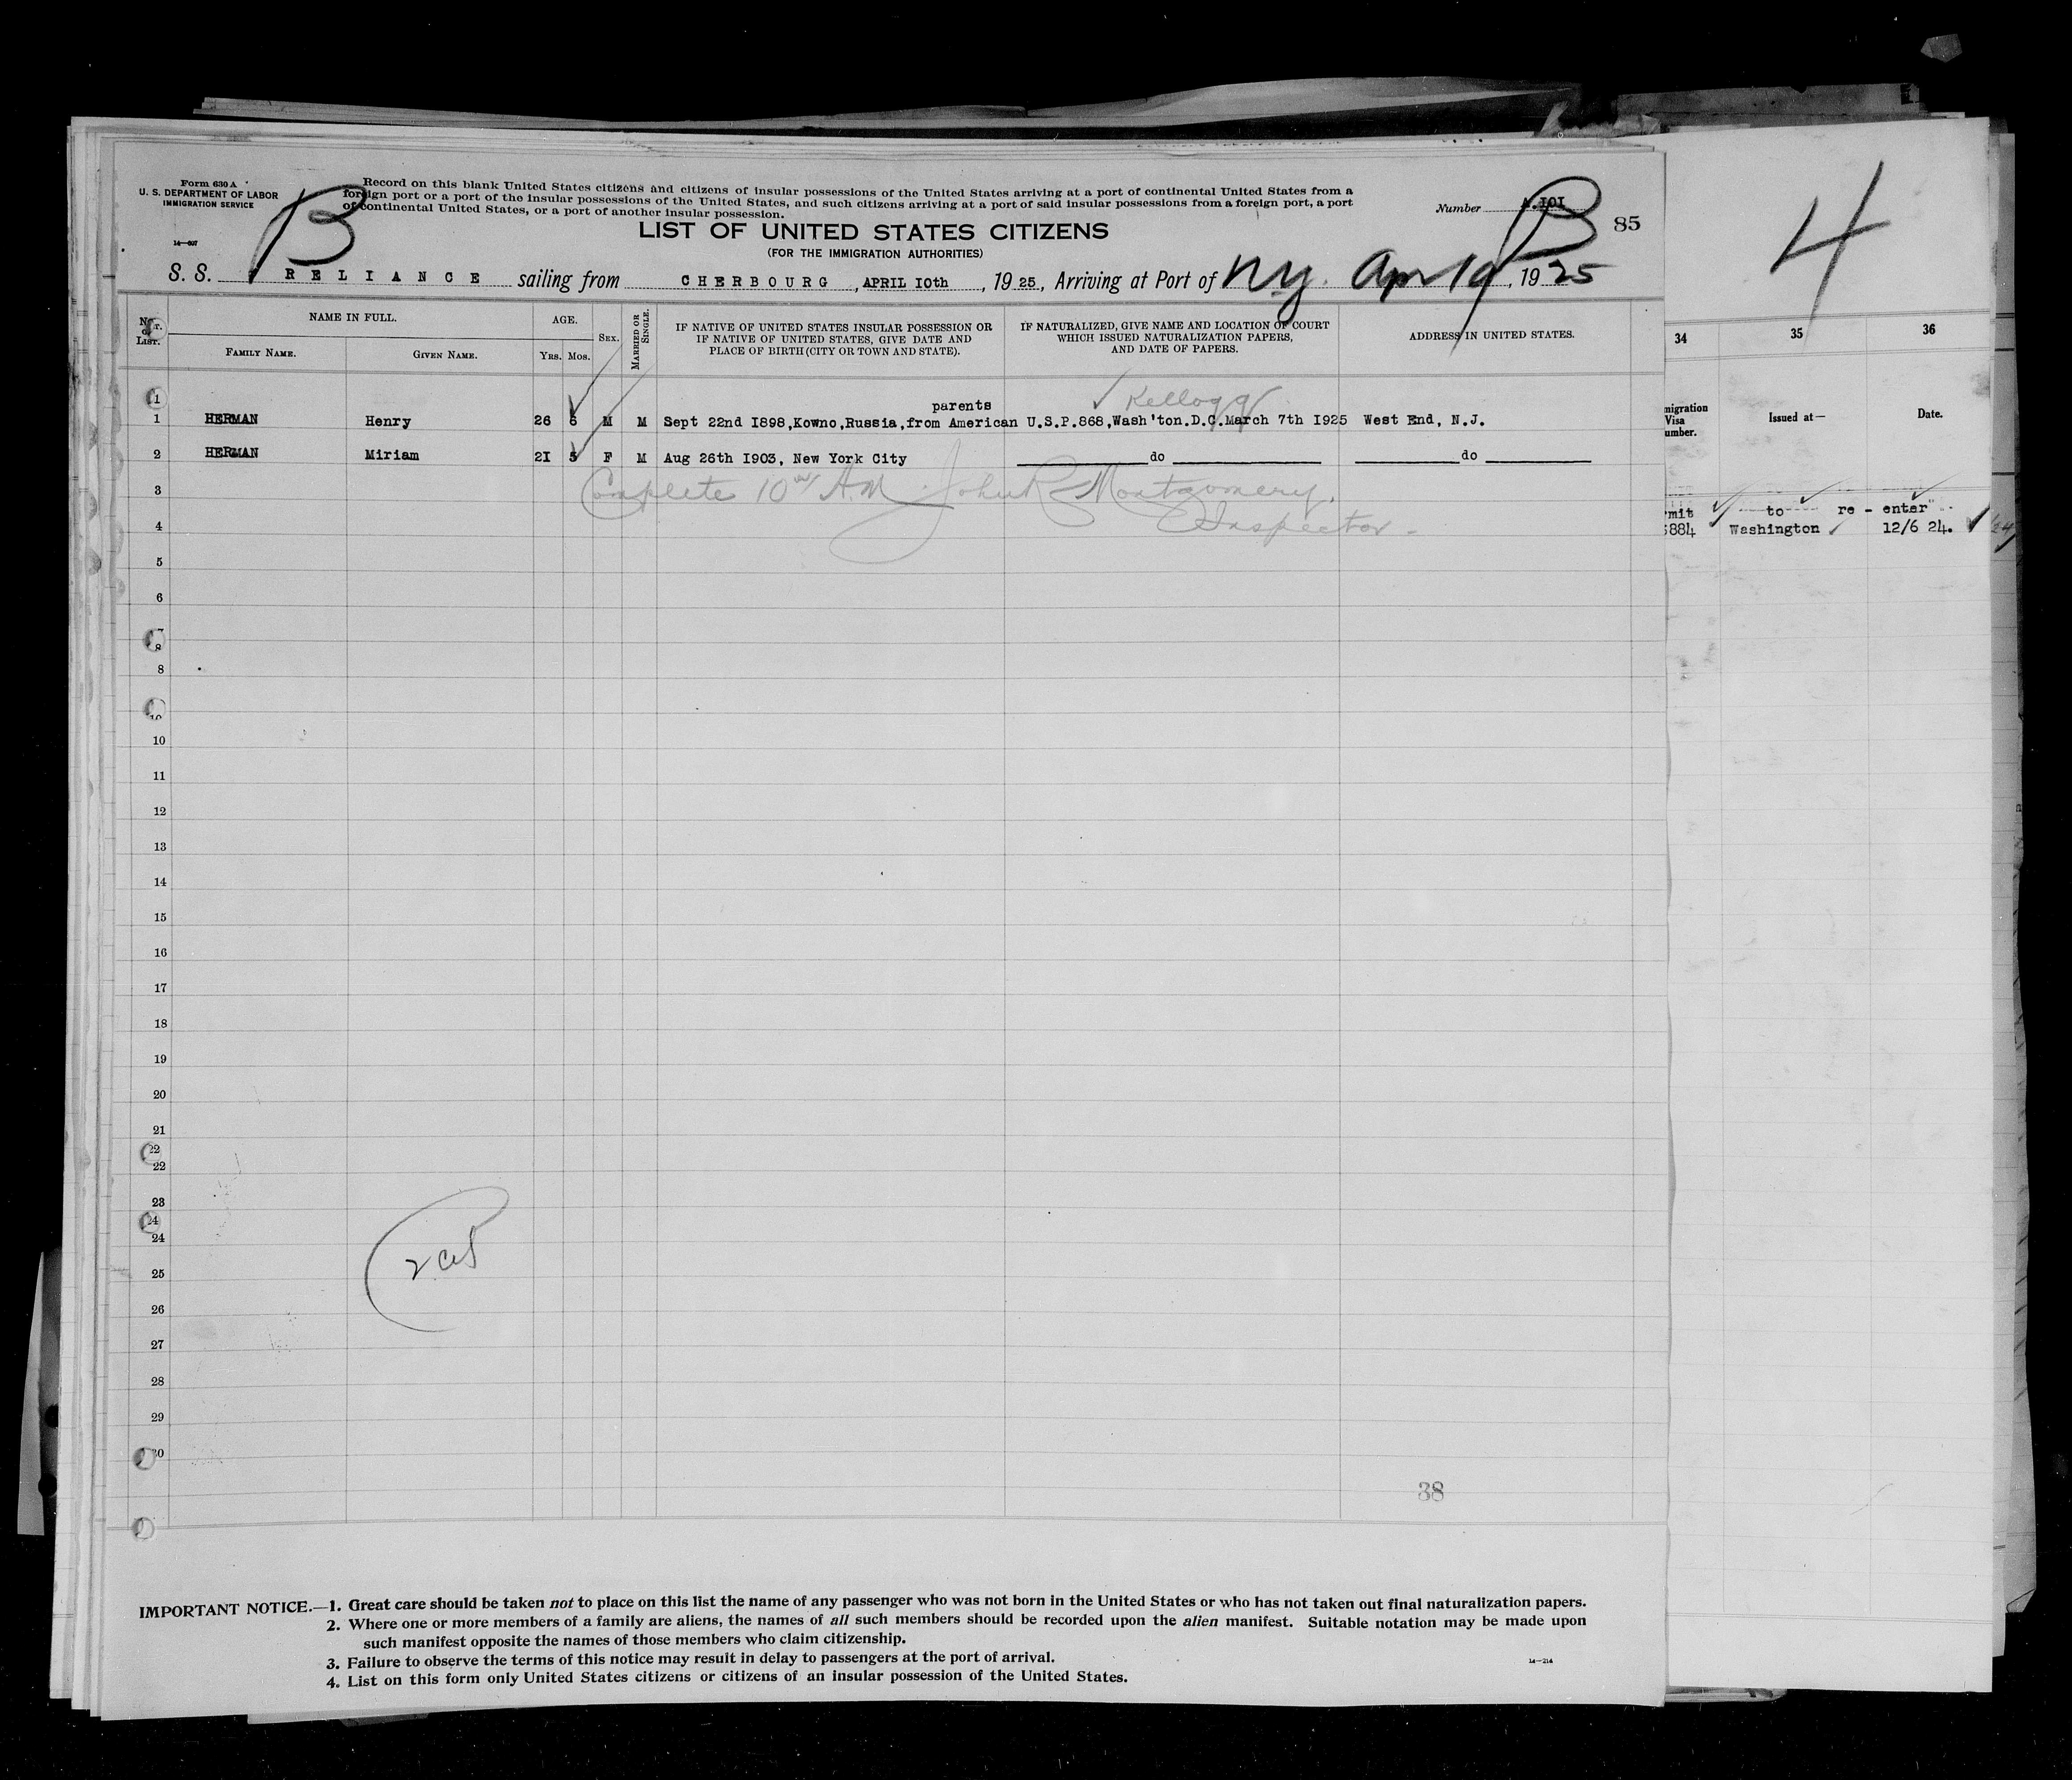 Form 630 A
U. S. DEPARTMENT OF LABOR
IMMIGRATION SERVICE
14—607
B
Record on this blank United States citizens and citizens of insular possessions of the United States arriving at a port of continental United States from a
foreign port or a port of the insular possessions of the United States, and such citizens arriving at a port of said insular possessions from a foreign port, a port
of continental United States, or a port of another insular possession.
Number A.IOI
B
85
LIST OF UNITED STATES CITIZENS
(FOR THE IMMIGRATION AUTHORITIES)
S. S. RELIANCE sailing from CHERBOURG, APRIL IOth, 1925, Arriving at Port of NY. Apr 19, 1925
No. on List.
NAME IN FULL.
FAMILY NAME.
GIVEN NAME.
AGE.
YRS. MOS.
SEX.
MARRIED OR SINGLE.
IF NATIVE OF UNITED STATES INSULAR POSSESSION OR
IF NATIVE OF UNITED STATES, GIVE DATE AND
PLACE OF BIRTH (CITY OR TOWN AND STATE).
IF NATURALIZED, GIVE NAME AND LOCATION OF COURT
WHICH ISSUED NATURALIZATION PAPERS,
AND DATE OF PAPERS.
ADDRESS IN UNITED STATES.
parents Kellogg
1 HERMAN Henry 26 6 M M Sept 22nd I898,Kowno,Russia,from American U.S.P.868,Wash'ton.D.C.March 7th I925 West End, N.J.
2 HERMAN Miriam 2I 5 F M Aug 26th I903, New York City do do
3 Complete 10 AM John R Montgomery.
4 Inspector
5
6
7
8
8
10
10
11
12
13
14
15
16
17
18
19
20
21
22
22
23
24
24
25
26
27
28
29
30
38
IMPORTANT NOTICE.—1. Great care should be taken not to place on this list the name of any passenger who was not born in the United States or who has not taken out final naturalization papers.
2. Where one or more members of a family are aliens, the names of all such members should be recorded upon the alien manifest. Suitable notation may be made upon
such manifest opposite the names of those members who claim citizenship.
3. Failure to observe the terms of this notice may result in delay to passengers at the port of arrival.
4. List on this form only United States citizens or citizens of an insular possession of the United States.
14—214
4
34 35 36
migration
Visa
umber.
Issued at—
Date.
rmit to re - enter
884 Washington 12/6 24.